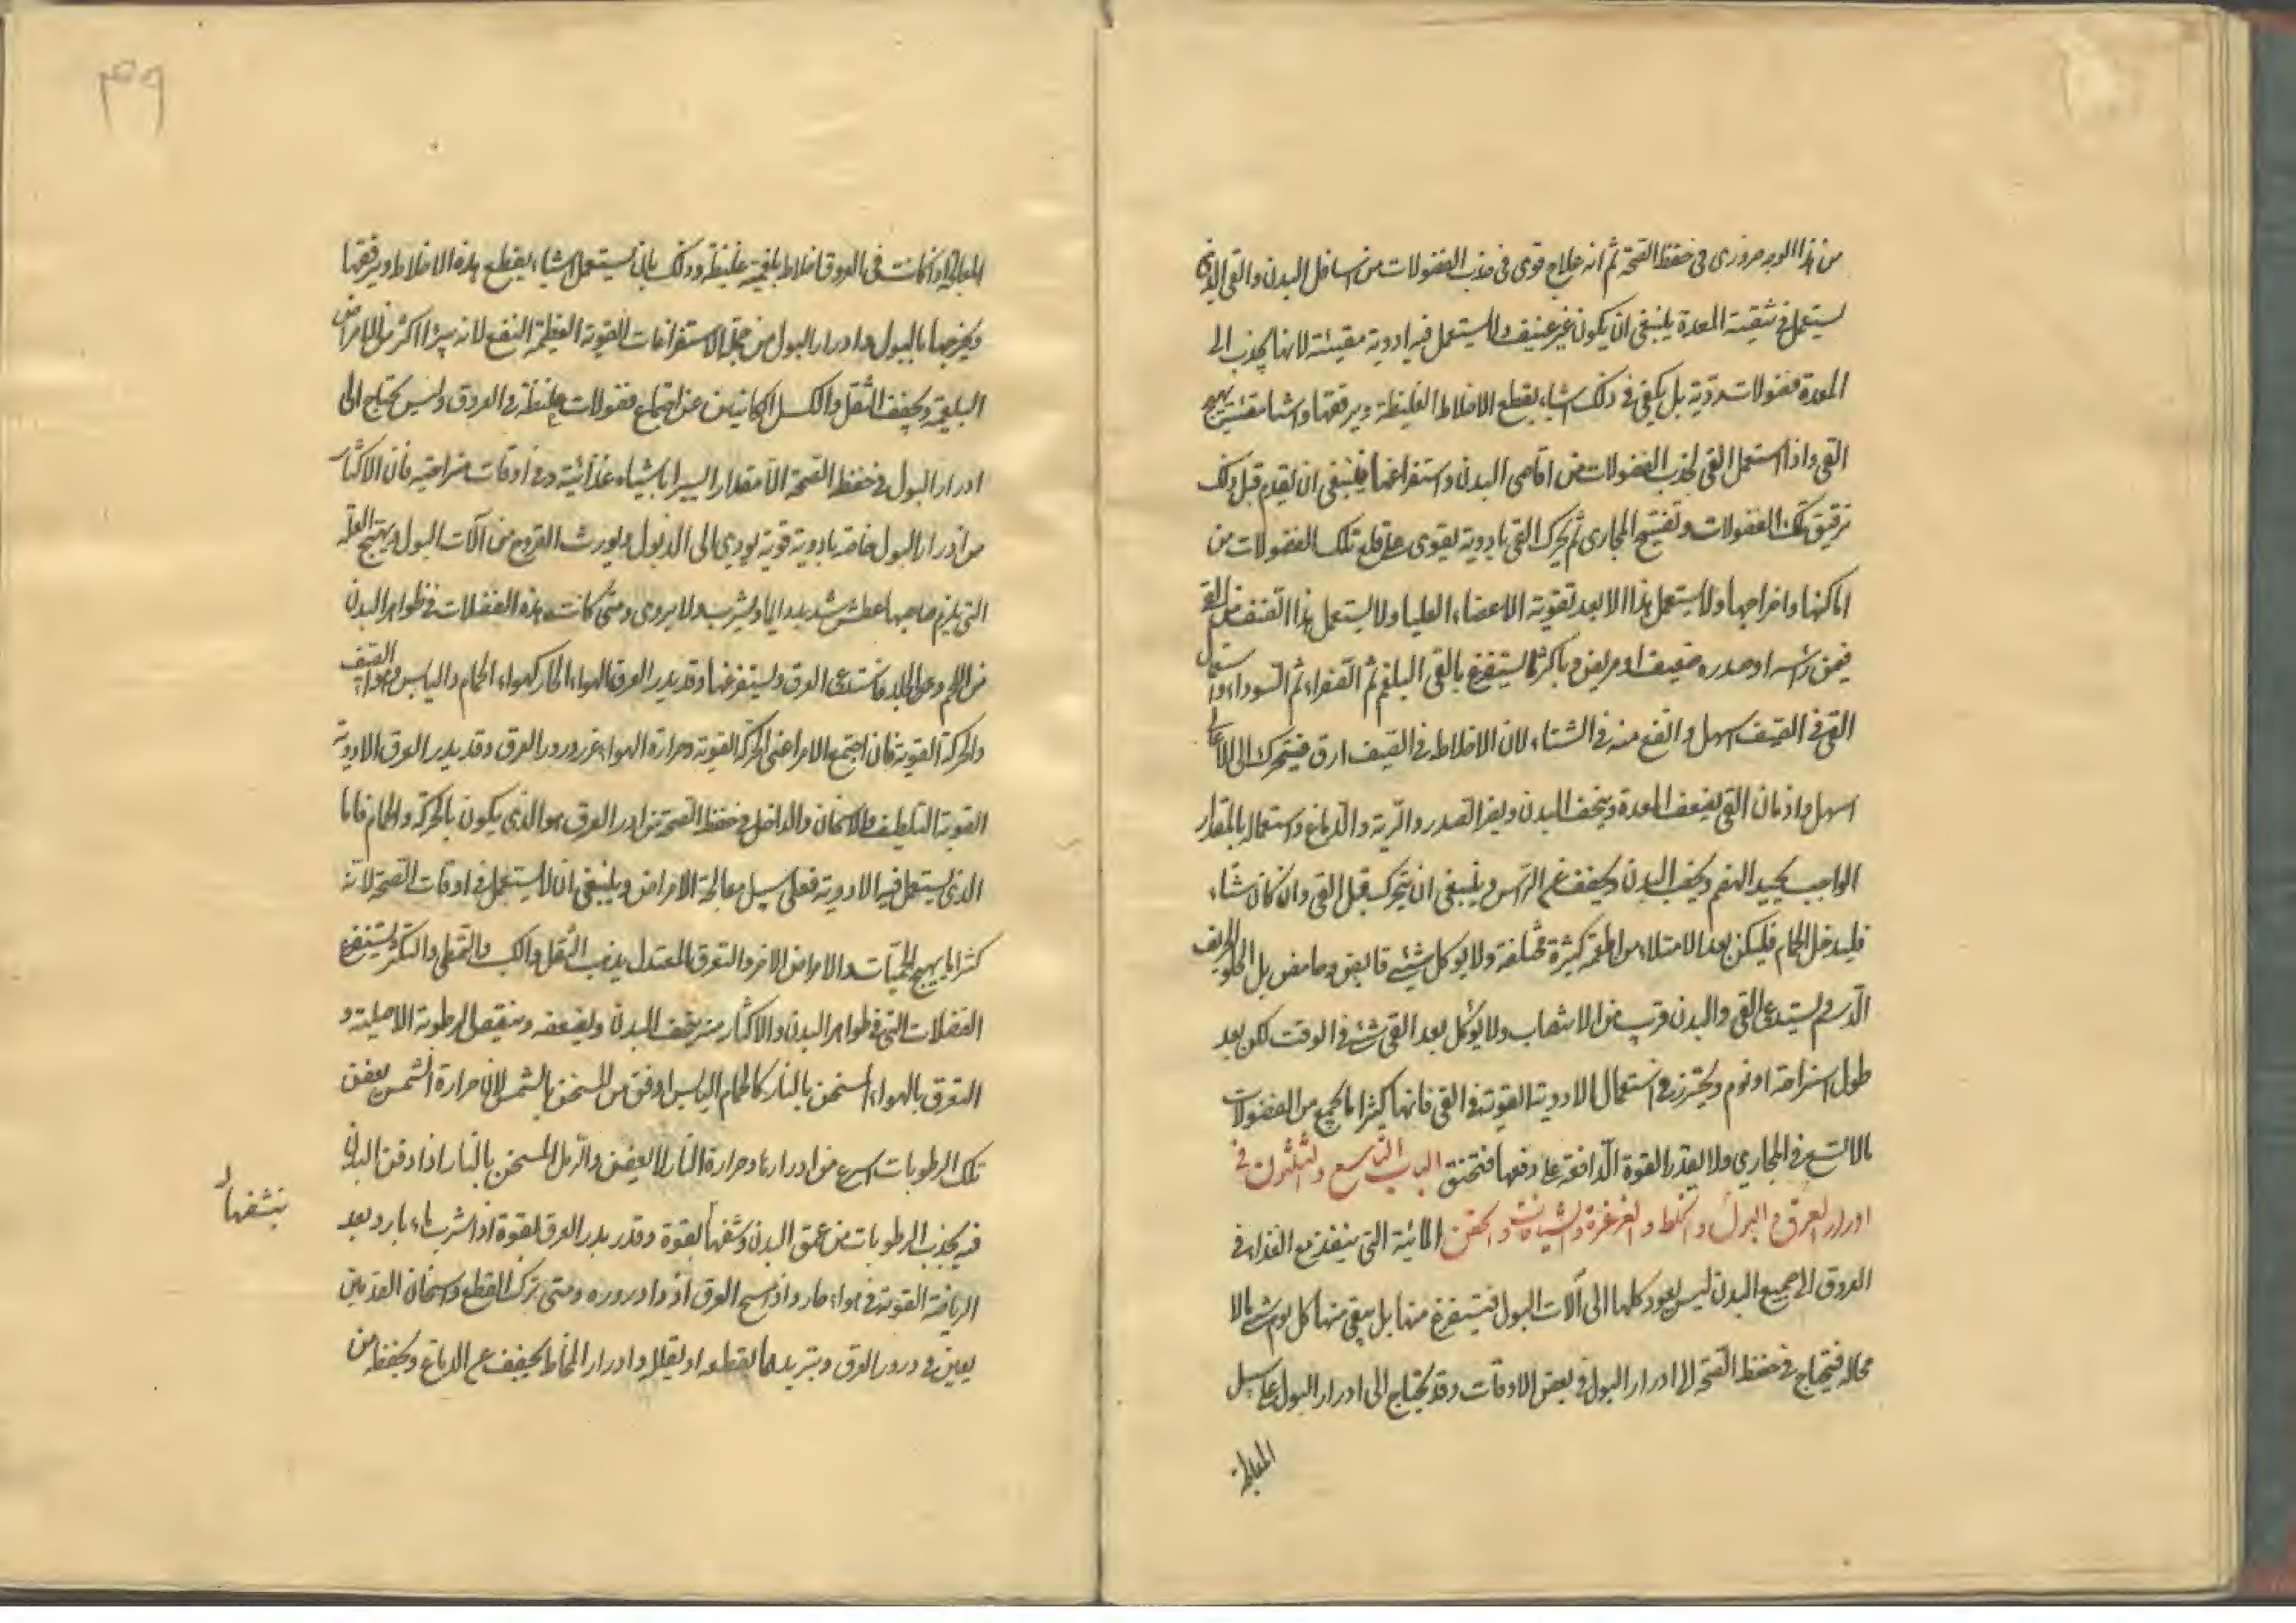 من هذا الوجه ضروری فی حفظ الصحة ثم انه علاج قوی فی جذب الفضولات من اسافل البدن والقی الذی
یستعمل فی تنقیة المعدة ینبغی ان یکون غیر عنیف ولا یستعمل فیه ادویة مقیئة لانها یجذب الی
المعدة فضولات ردّیة بل یکفی فی ذلک اشیاء یقطع الاخلاط الغلیظة ویرققها واشیا مقیئة یهیج
القی واذا استعمل القی لجذب الفضولات من اقاصی البدن واستفراغها فینبغی ان یقدم قبل ذلک
ترقیق تلک الفضولات وتفتیح المجاری ثم یحرک القی بادویة یقوی علی قلع تلک الفضولات من
اماکنها واخراجها ولا یستعمل هذا الا بعد تقویة الاعضاء العلیا ولا یستعمل هذا الصنف من القی
فیمن راسه او صدره ضعیف او مریض وباکثر ما یستفرغ بالقی البلغم ثم الصفراء ثم السوداء واستعمال
القی فی الصیف اسهل وانفع منه فی الشتاء لان الاخلاط فی الصیف ارق فیتحرک الی الاعالی
اسهل وادمان القی یضعف المعدة وینحف البدن ویضر الصدر والریة والدماغ واستعماله بالمقدار
الواجب یجید الهضم ویخف البدن ویخفف عن الراس وینبغی ان یتحرک قبل القی وان کان شتاء
فلیدخل الحمام فلیکن بعد الامتلاء من اطعمة کثیرة مختلفة ولا یوکل شئ قابض وحامض بل الحلو الحریف
الدسم ویستدعی القی والبدن قریب من الانتصاب ولا یوکل بعد القی شئ فی الوقت لکن بعد
طول استراحة او نوم ویحترز فی استعمال الادویة القویة فی القی فانها کثیرا ما یجمع من الفضولات
مالا یسع فی المجاری ولا یقدر القوة الدافعة علی دفعها فتختنق الباب التاسع والثلثون فی
ادرار العرق والبول والمخاط والغرغرة والشیافات والحقن المائیة التی ینفذ مع الغذاء فی
العروق الی جمیع البدن لیس یعود کلها الی آلات البول فیستفرغ منها بل یبقی منها کل یوم شئ لا
محالة فیحتاج فی حفظ الصحة الی ادرار البول فی بعض الاوقات وقد یحتاج الی ادرار البول علی سبیل
المعالجة
۳۹
المعالجة اذا کانت فی العروق اخلاط بلغمیة غلیظة وذلک بان یستعمل اشیاء یقطع هذه الاخلاط ویرققها
ویخرجها بالبول وادرار البول من جملة الاستفراغات القویة العظیمة النفع لانه یبرئ اکثر من الامراض
البلغمیة ویخفف الثقل والکسل الکائنین عن اجتماع فضولات غلیظة فی العروق ولیس یحتاج الی
ادرار البول فی حفظ الصحة الا مقدار الیسیر باشیاء غذائیة وفی اوقات متراخیة فان الاکثار
من ادرار البول خاصة بادویة قویة یودی الی الذبول ویورث القروح من آلات البول ویهیج العلة
التی یلزم صاحبها عطش شدید دایما ویشرب ولا یروی ومتی کانت هذه الفضلات فی ظواهر البدن
من اللحم وعن الجلد فاستدعی العرق ویستفرغها وقد یدر العرق الهواء الحار کهواء الحمام والیابس وهواء الصیف
والحرکة القویة فان اجتمع الامر اعنی الحرکة القویة وحرارة الهواء غزر درور العرق وقد یدر العرق الادویة
القویة التلطیف والاسخان والداخل فی حفظ الصحة من ادرار العرق هو الذی یکون بالحرکة والحمام فاما
الذی یستعمل فیه الادویة فعلی سبیل معالجة الامراض وینبغی ان لا یستعمل فی اوقات الصحة لانه
کثیرا ما یهیج الحمیات والامراض الاخر والتعرق المعتدل یذهب الثقل والکسل والتمطی والتکسر ویستفرغ
الفضلات التی فی ظواهر البدن والاکثار منه یخفف البدن ویضعفه وینقص الرطوبة الاصلیة و
التعرق بالهواء المسخن بالنار کالحمام الیابس اوفق من المسخن بالشمس لان حرارة الشمس یعفن
تلک الرطوبات اسرع من ادرارها وحرارة النار لا یعفن والرمل المسخن بالنار اذا دفن البدن
فیه یجذب الرطوبات من عمق البدن وینشفها بقوة وقد یدر العرق بقوة اذا شرب ماء بارد بعد
ینشفها
الریاضة القویة فی هواء حار واذا مسح العرق ازداد دروره ومتی ترک انقطع واسخان القدمین
یعین فی درور العرق وتبریدهما یقطعه او یقلله وادرار المخاط یخفف عن الدماغ ویحفظه من